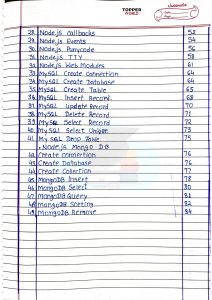 TOPPER
WORLD
classmate
28. Node.js callbacks 52
29. Node.js Events 54
30. Node.js Punycode 56
31. Node.js TTY 58
32. Node.js Web Modules 61
33. MySQL Create Connection 64
34. MySQL Create Database 64
35. MySQL Create Table 65
36. MySQL Insert Record 68
37. MySQL Update Record 70
38. MySQL Delete Record 71
39. MySQL Select Record 72
40. MySQL Select Unique 73
41. MySQL Drop Table 75
• Node.js Mongo DB
42. Create Connection 76
43. Create Database 76
44. Create Collection 77
45. MongoDB Insert 78
46. MongoDB Select 80
47. MongoDB Query 81
48. MongoDB Sorting 82
49. MongoDB Remove 84